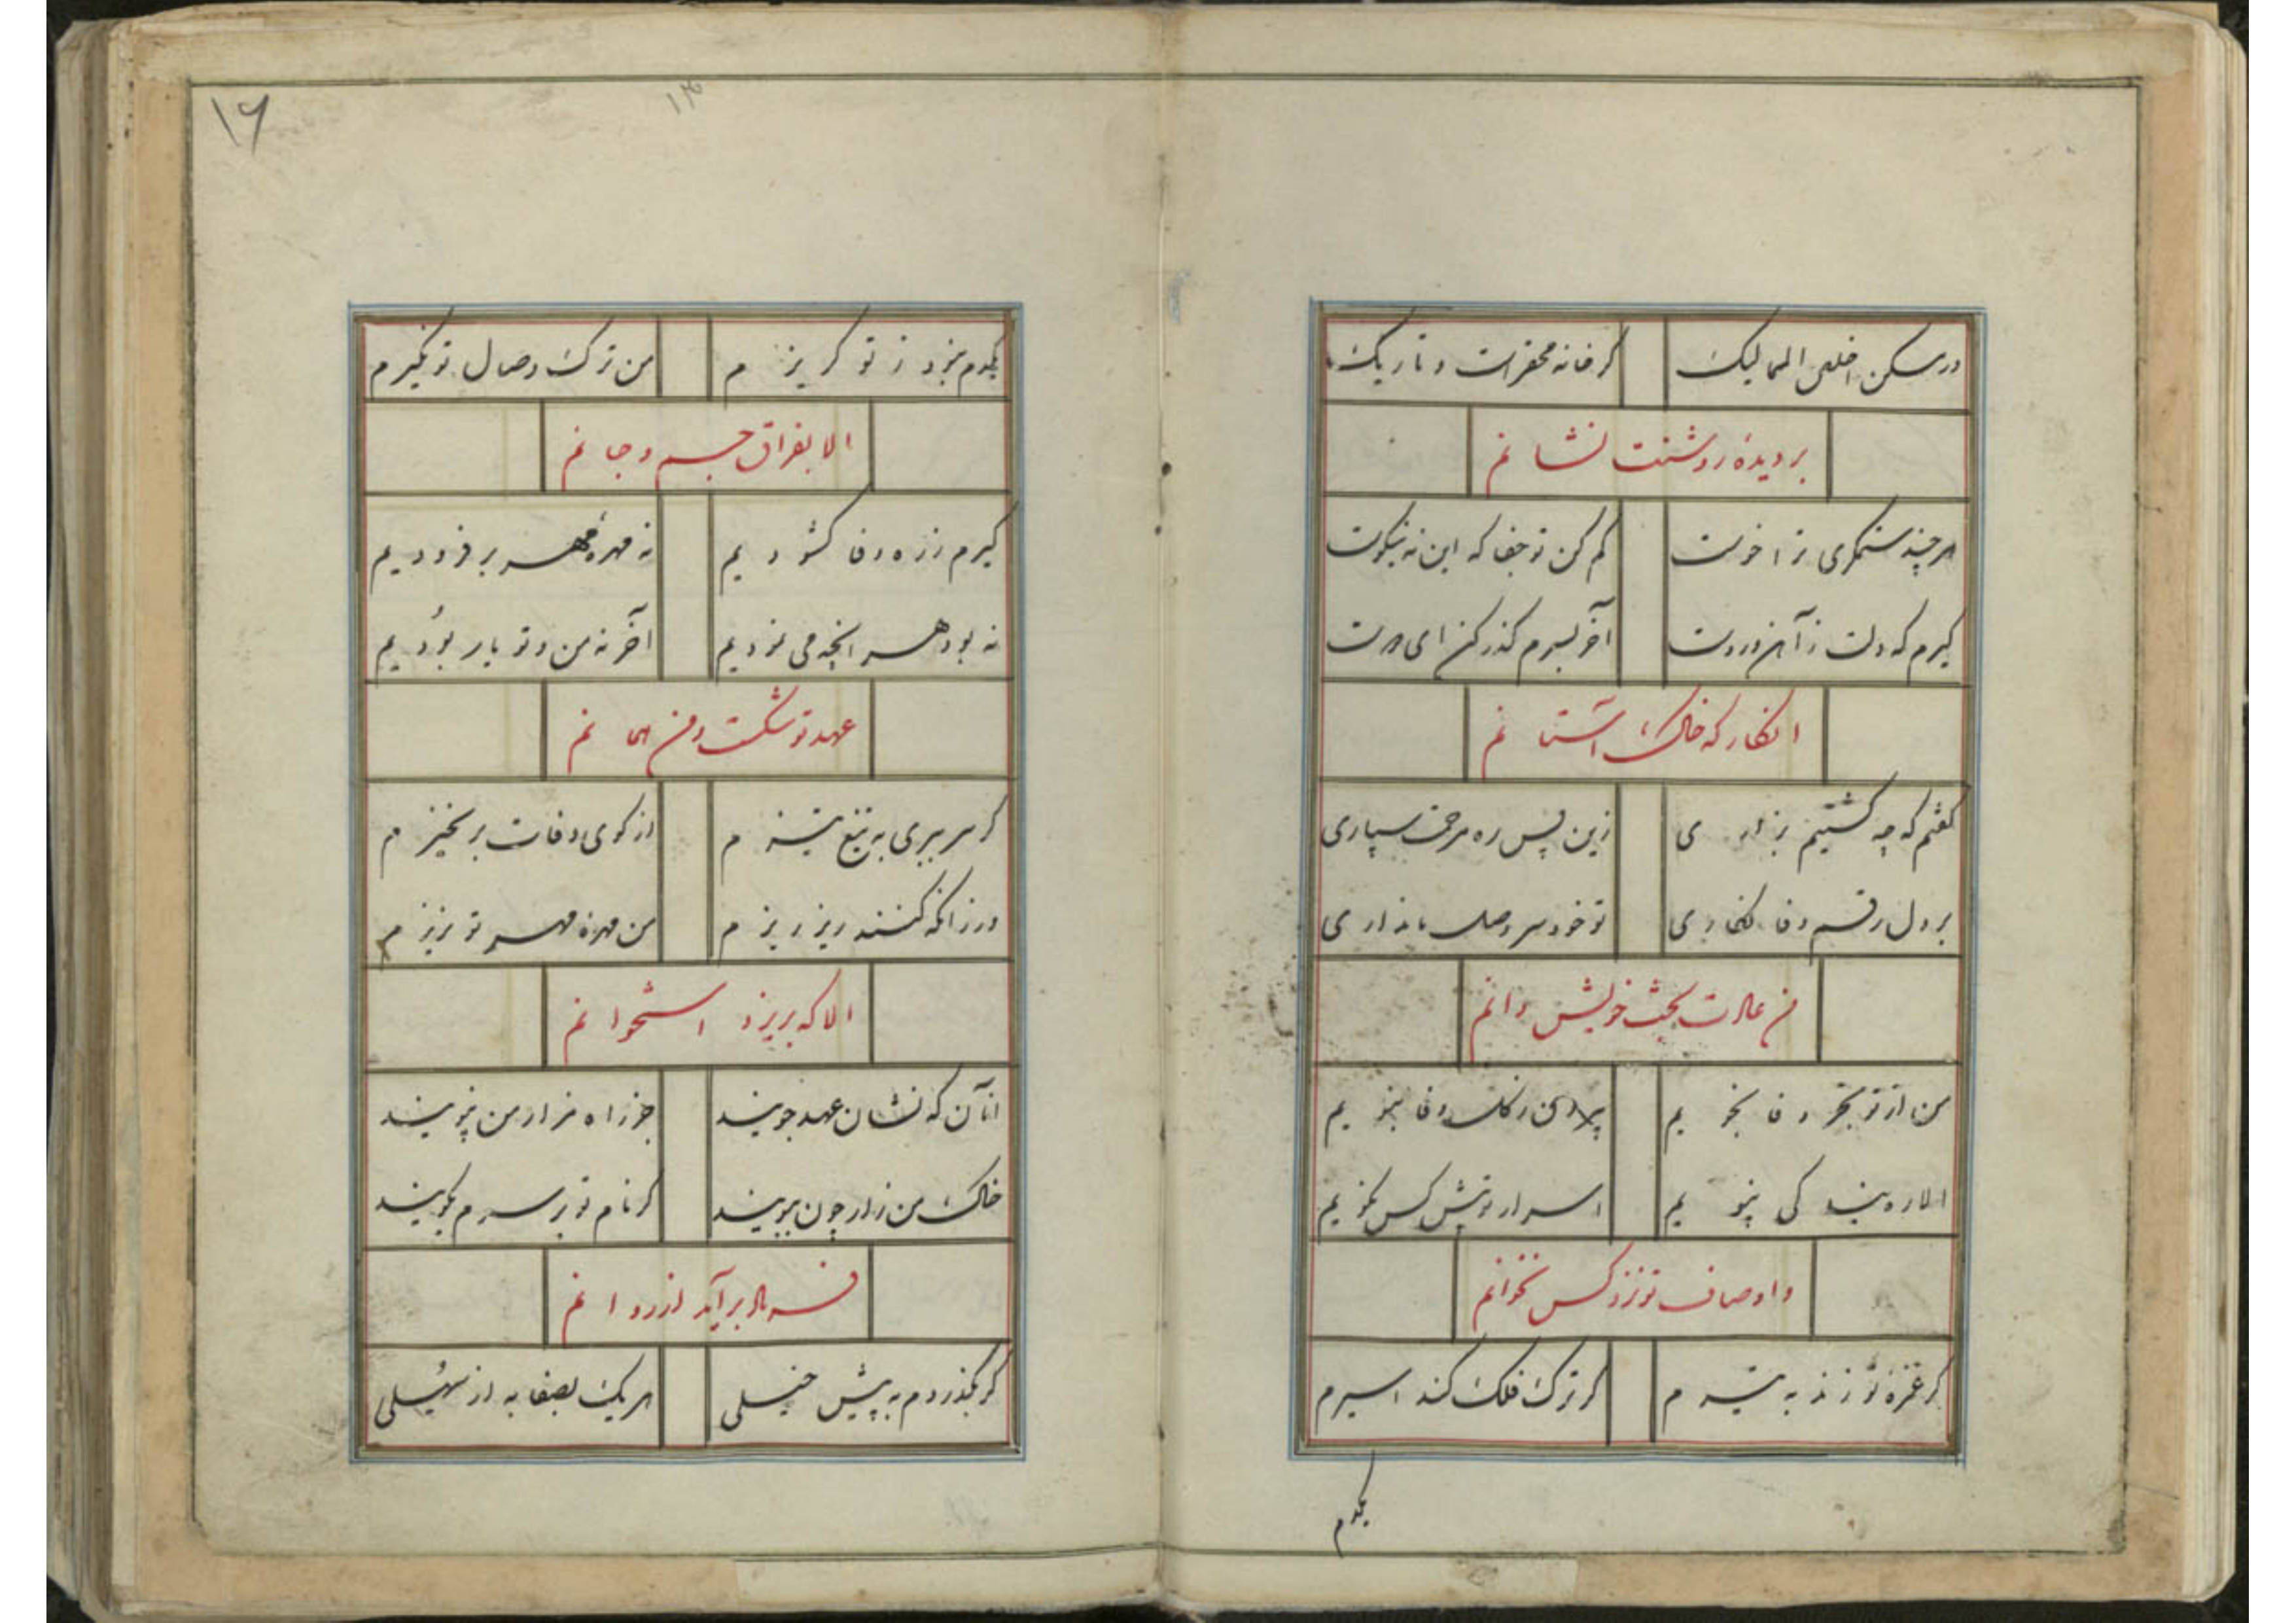 در مسکن اخلص الممالیک گر خانه محقر است و تاریک
بر دیدهٔ روشنت نشانم
هر چند ستمگری ترا خوست کم کن تو جفا که این نه نیکوست
گیرم که دلت ز آهن و روست آخر بسرم گذر کن ای دوست
انگار که خاک آستانم
گفتم که چه کشتیم بزاری زین پس ره مرحمت سپاری
بر دل رقم وفا نگاری تو خود سر وصل ما نداری
من عادت بخت خویش دانم
من از تو بجز وفا نجویم بیرون ز گل وفا نبویم
الا ره بندگی نپویم اسرار تو پیش کس نگویم
و اوصاف تو نزد کس نخوانم
گر غمزهٔ تو زند به تیرم گر ترک فلک کند اسیرم
یکدم
۱۶
یکدم نبود ز تو گریزم من ترک وصال تو نگیرم
الا بفراق جسم و جانم
گیرم ز ره وفا گشودیم نه مهرهٔ مهر بر فزودیم
نه بود هر آنچه می نمودیم آخر نه من و تو یار بودیم
عهد تو شکست و من همانم
گر سر ببری به تیغ تیزم از کوی وفات بر نخیزم
ور زانکه کنند ریز ریزم من مهرهٔ مهر تو نریزم
الا که بریزد استخوانم
آنان که نشان عهد جویند جز راه مزار من نپویند
خاک من زار چون ببویند گر نام تو بر سرم بگویند
فریاد برآید از روانم
گر بگذردم به پیش خیلی هر یک بصفا به از سهیلی